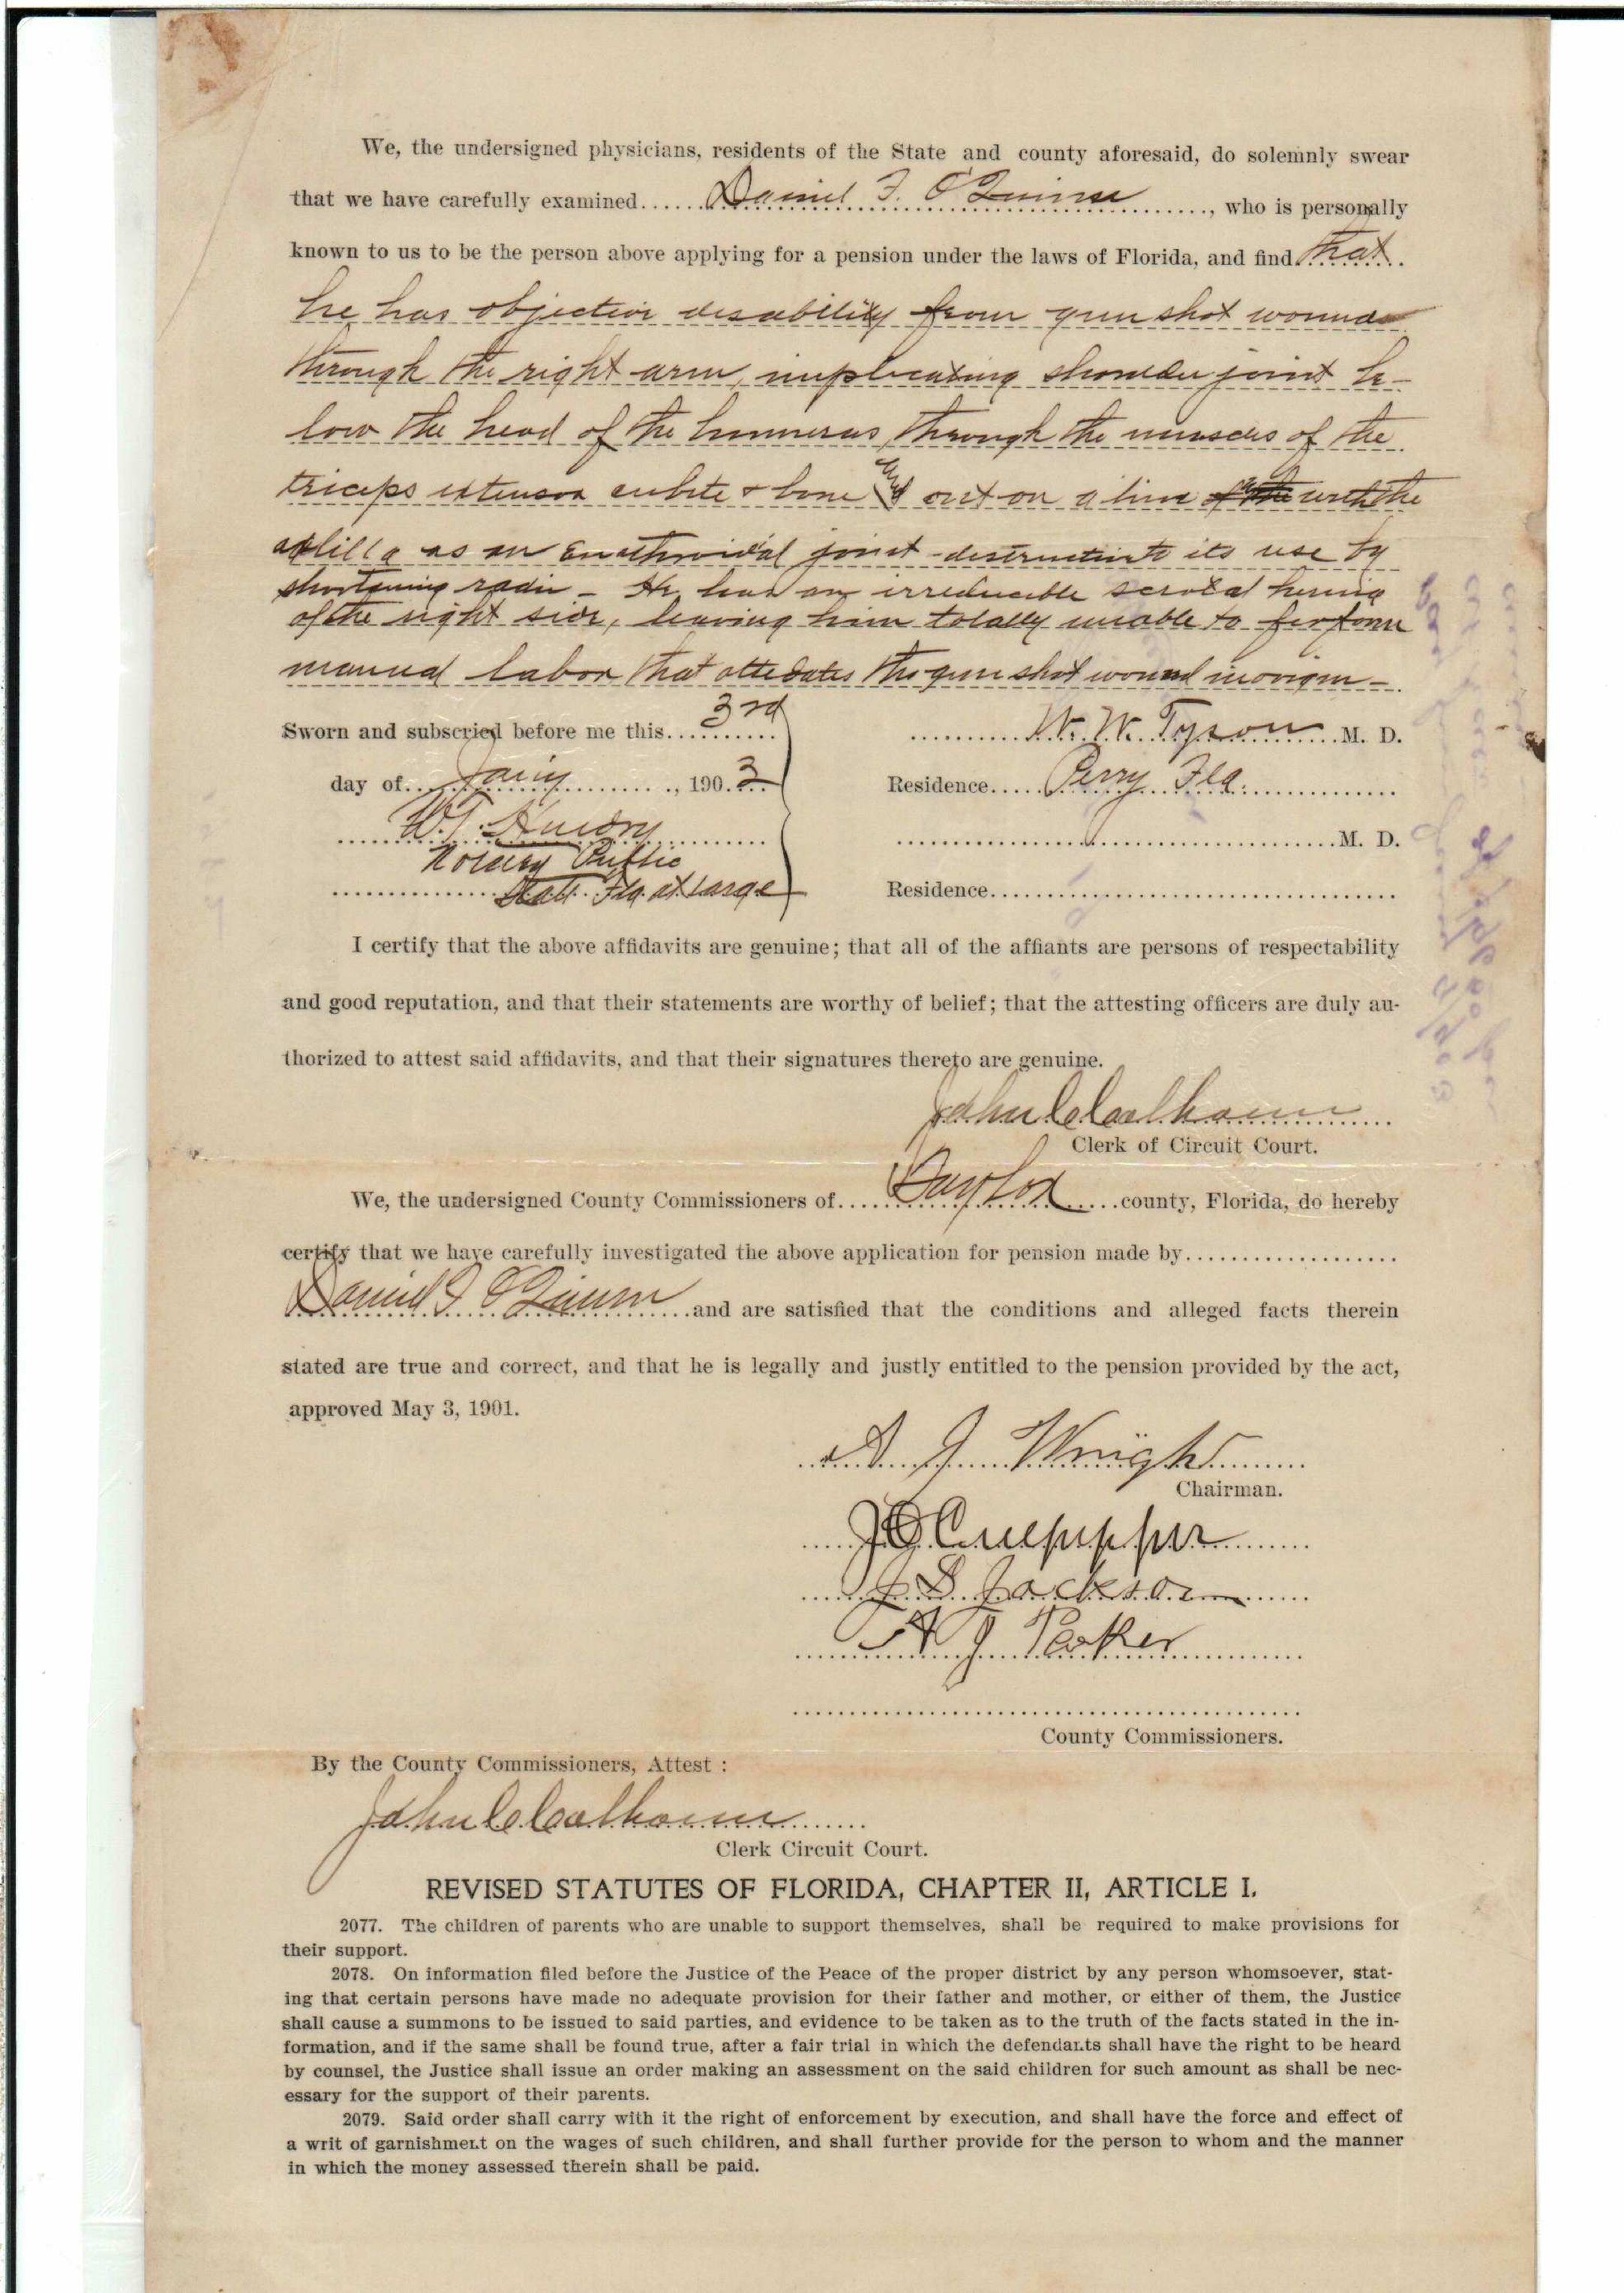 We, the undersigned physicians, residents of the State and county aforesaid, do solemnly swear
that we have carefully examined...... Daniel F. O'Quinn ........, who is personally
known to us to be the person above applying for a pension under the laws of Florida, and find. that
he has objective disability from gun shot wounds
through the right arm, implicating shoulder joint be-
low the head of the humerus through the muscles of the
triceps extensor cubite & bone and out on a line with the
axilla as an Enarthroidal joint - its use by
shortening radii - He has an irreducible scrotal hernia
of the right side, leaving him totally unable to perform
manual labor that the gun shot wound in origin -
Sworn and subscried before me this.... 3rd
W. W. Tyson M. D.
day of.... Jany ....., 190.3
Residence..... Perry Fla.
W.T. Hendry
M. D.
Notary Public
State Fla. at Large
Residence.....
I certify that the above affidavits are genuine; that all of the affiants are persons of respectability
and good reputation, and that their statements are worthy of belief; that the attesting officers are duly au-
thorized to attest said affidavits, and that their signatures thereto are genuine.
John C Calhoun
Clerk of Circuit Court.
We, the undersigned County Commissioners of..... Taylor .....county, Florida, do hereby
certify that we have carefully investigated the above application for pension made by.....
Daniel F O'Quinn .....and are satisfied that the conditions and alleged facts therein
stated are true and correct, and that he is legally and justly entitled to the pension provided by the act,
approved May 3, 1901.
A J Wright
Chairman.
J O Culpepper
J S Jackson
A J Parker
County Commissioners.
By the County Commissioners, Attest :
John C Calhoun
Clerk Circuit Court.
REVISED STATUTES OF FLORIDA, CHAPTER II, ARTICLE I.
2077. The children of parents who are unable to support themselves, shall be required to make provisions for
their support.
2078. On information filed before the Justice of the Peace of the proper district by any person whomsoever, stat-
ing that certain persons have made no adequate provision for their father and mother, or either of them, the Justice
shall cause a summons to be issued to said parties, and evidence to be taken as to the truth of the facts stated in the in-
formation, and if the same shall be found true, after a fair trial in which the defendants shall have the right to be heard
by counsel, the Justice shall issue an order making an assessment on the said children for such amount as shall be nec-
essary for the support of their parents.
2079. Said order shall carry with it the right of enforcement by execution, and shall have the force and effect of
a writ of garnishment on the wages of such children, and shall further provide for the person to whom and the manner
in which the money assessed therein shall be paid.